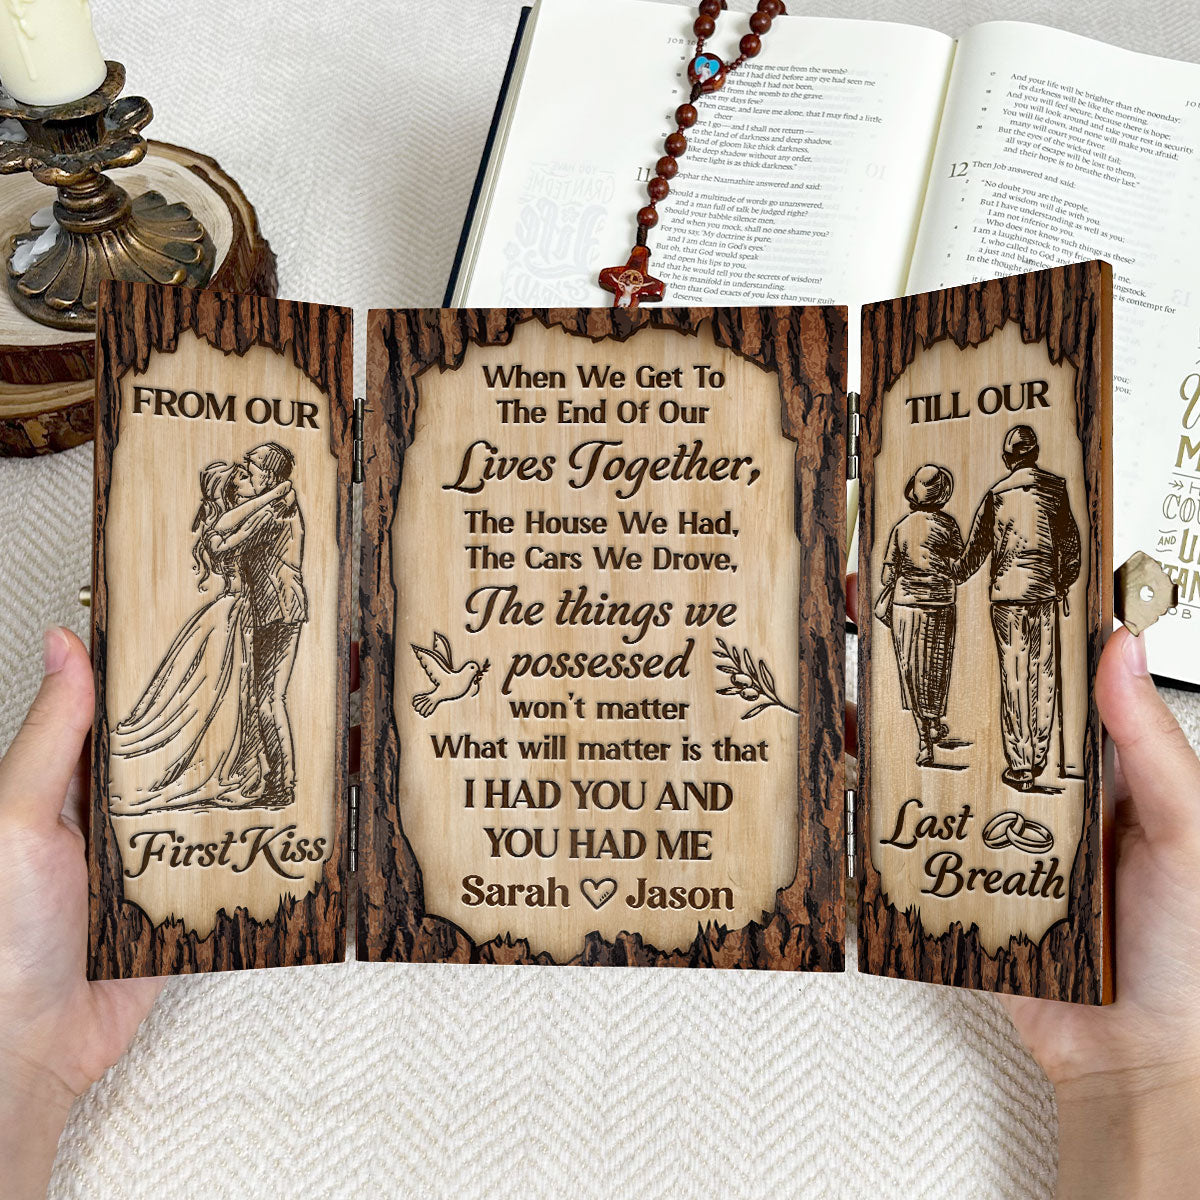 FROM OUR
First Kiss
When We Get To
The End Of Our
Lives Together,
The House We Had,
The Cars We Drove,
The things we
possessed
won't matter
What will matter is that
I HAD YOU AND
YOU HAD ME
Sarah Jason
TILL OUR
Last
Breath
JOB
bring me out from the womb?
that I had died before any eye had seen me
as though I had not been,
from the womb to the grave.
not my days few?
Then cease, and leave me alone, that I may find a little
cheer
I go—and I shall not return—
to the land of darkness and deep shadow,
land of gloom like thick darkness,
like deep shadow without any order,
where light is as thick darkness."
11
the Naamathite answered and said:
Should a multitude of words go unanswered,
and a man full of talk be judged right?
Should your babble silence men,
and when you mock, shall no one shame you?
For you say, 'My doctrine is pure,
and I am clean in God's eyes.'
But oh, that God would speak
and open his lips to you,
and that he would tell you the secrets of wisdom!
For he is manifold in understanding.
then that God exacts of you less than your guilt
deserves
17 And your life will be brighter than the noonday;
its darkness will be like the morning.
18 And you will feel secure, because there is hope;
you will look around and take your rest in security.
19 You will lie down, and none will make you afraid;
many will court your favor.
20 But the eyes of the wicked will fail;
all way of escape will be lost to them,
and their hope is to breathe their last."
12 Then Job answered and said:
2 "No doubt you are the people,
and wisdom will die with you.
3 But I have understanding as well as you;
I am not inferior to you.
Who does not know such things as these?
4 I am a laughingstock to my friends;
I, who called to God and
a just and blameless
5 In the thought of
is contempt for